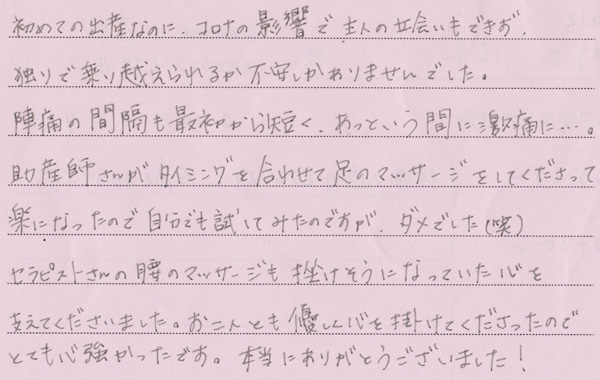 初めての出産なのに、コロナの影響で主人の立会いもできず、
独りで乗り越えられるか不安しかありませんでした。
陣痛の間隔も最初から短く、あっという間に激痛に…。
助産師さんがタイミングを合わせて足のマッサージをしてくださって
楽になったので自分でも試してみたのですが、ダメでした(笑)
セラピストさんの腰のマッサージも挫けそうになっていた心を
支えてくださいました。お二人とも優しく心を掛けてくださったので
とても心強かったです。本当にありがとうございました！